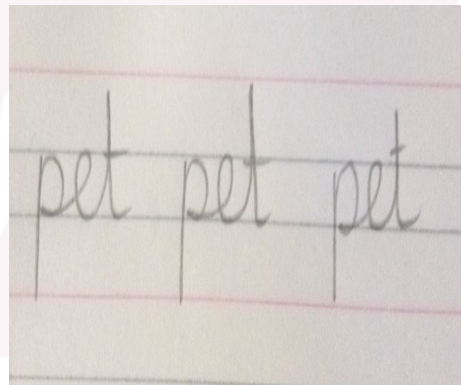 pet pet pet